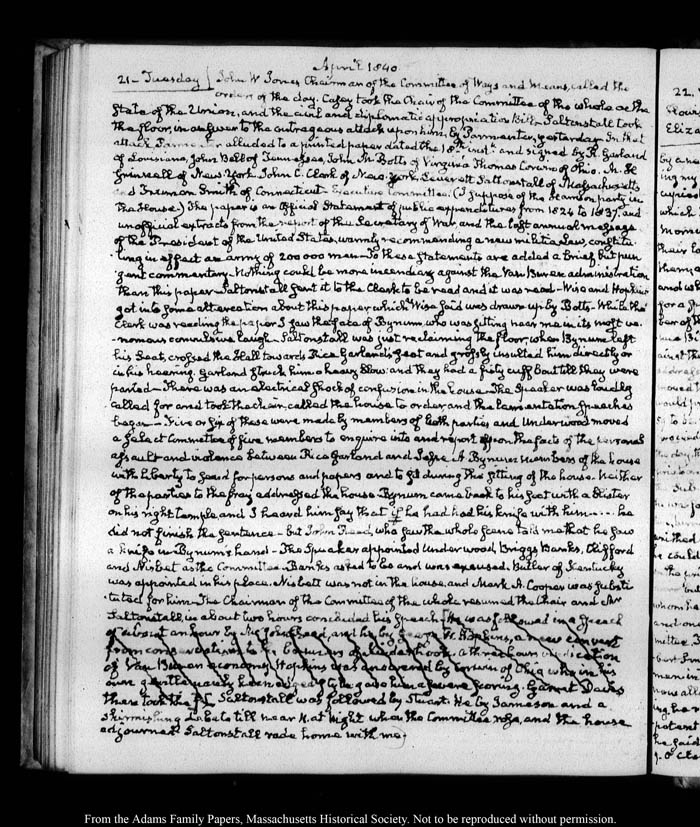 April 1840
21 - Tuesday John W Jones Chairman of the Committee of Ways and Means, called the
orders of the day. Casey took the Chair of the Committee of the whole on the
state of the Union, and the civil and diplomatic appropriation Bill. Saltonstall took
the floor, in answer to the outrageous attack upon him, by Parmenter, yesterday. In that
attack Parmenter alluded to a printed paper dated the 18th inst. and signed by R. Garland
of Louisiana, John Bell of Tennessee, John M. Botts of Virginia Thomas Corwin of Ohio. M. H
Grinnell of New York. John C. Clark of New York. Leverett Saltonstall of Massachusetts
and Truman Smith of Connecticut - Executive Committee. (I suppose of the Harrison party in
the House.) The paper is an Official Statement of public expenditures from 1824 to 1837, and
unofficial extracts from the report of the Secretary of War, and the last annual message
of the President of the United States, warmly recommending a new militia Law, constitu
ting in effect an army of 200000 men - To these statements are added a brief but pun
gent commentary. Nothing could be more incendiary against the Van Buren administration
than this paper - Saltonstall sent it to the Clerk to be read and it was read - Wise and Hopkins
got into some altercation about this paper which Wise said was drawn up by Botts - While the
Clerk was reading the paper I saw the face of Bynum, who was sitting near me in its most ve-
nomous convulsive laugh - Saltonstall was just reclaiming the floor, when Bynum left
his seat, crossed the Hall towards Rice Garland's seat and grossly insulted him directly or
in his hearing. Garland struck him a heavy blow: and they had a fisty cuff bout till they were
parted - There was an electrical shock of confusion in the house. The Speaker was loudly
called for and took the chair, called the house to order, and the lamentation speeches
began - Five or six of these were made by members of both parties and Underwood moved
a select Committee of five members to enquire into and report upon the facts of the personal
assault and violence between Rice Garland and Jesse A Bynum members of the house
with liberty to send for persons and papers and to sit during the sitting of the house. Neither
of the parties to the fray addressed the house. Bynum came back to his seat with a blister
on his right temple, and I heard him say that if he had had his knife with him ---- he
did not finish the sentence - but John Reed, who saw the whole scene told me that he saw
a knife in Bynum's hand - The Speaker appointed Underwood, Briggs Banks, Clifford
and Nisbet as the Committee. Banks asked to be and was excused. Butler of Kentucky
was appointed in his place. Nisbett was not in the house, and Mark A. Cooper was substi
tuted for him - The Chairman of the Committee of the whole resumed the Chair and Mr
Saltonstall, in about two hours concluded his speech. He was followed in a speech
of about an hour by Mr John Reed, and he by George W. Hopkins, a new convert
from conservatism to a three hours vindication
of Van Buren economy. Hopkins was answered by Corwin of Ohio who in his
own gave him a severe scoring. Garret Davis
then took the Saltonstall was followed by Stuart. He by Jameson and a
skirmishing debate till near at night when the Committee rose, and the house
adjourned. Saltonstall rode home with me
22.
Eliza
From the Adams Family Papers, Massachusetts Historical Society. Not to be reproduced without permission.